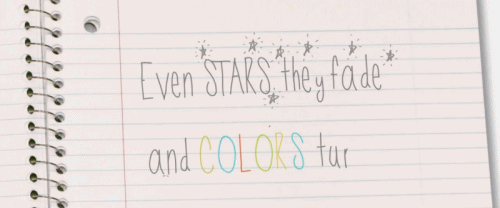 Even STARS they fade
and COLORS tur